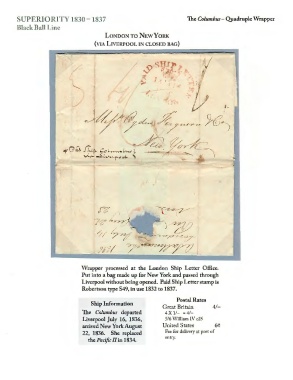 SUPERIORITY 1830 – 1837
Black Ball Line
The Columbus – Quadruple Wrapper
LONDON TO NEW YORK
(VIA LIVERPOOL IN CLOSED BAG)
PAID SHIP LETTER
Messrs Ogden Ferguson & Co
New York
Wrapper processed at the London Ship Letter Office.
Put into a bag made up for New York and passed through
Liverpool without being opened. Paid Ship Letter stamp is
Robertson type S49, in use 1832 to 1837.
Ship Information
The Columbus departed
Liverpool July 16, 1836,
arrived New York August
22, 1836. She replaced
the Pacific II in 1834.
Postal Rates
Great Britain 4/-
4 X 1/- = 4/-
5/6 William IV c25
United States 6¢
Fee for delivery at port of
entry.